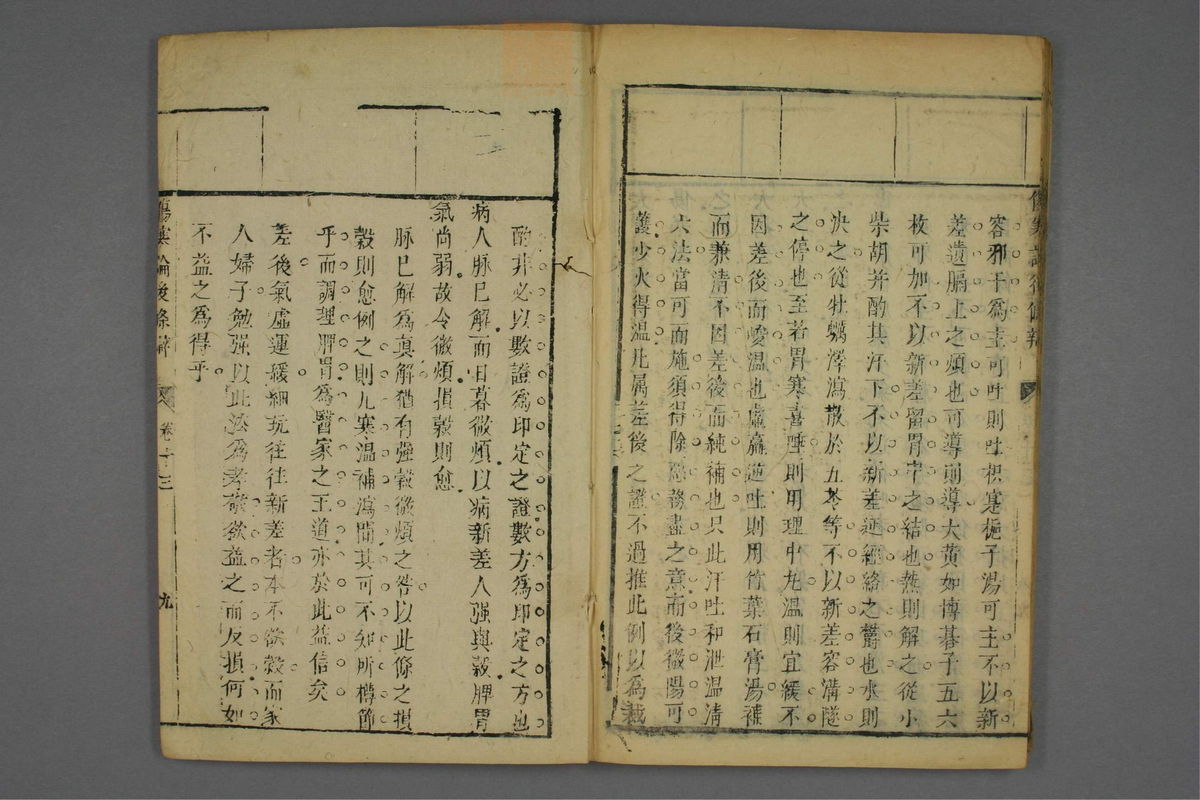 容邪干爲主可吐則吐枳寔梔子湯可主不以新
差遺膈上之煩也可導則導大黃如博碁子五六
枚可加不以新差畱胃中之結也熱則解之從小
柴胡并酌其汗下不以新差延經絡之欝也水則
決之從牡蠣澤瀉散於五苓等不以新差容溝隧
之停也至若胃寒喜唾則用理中丸温則宜緩不
因差後而峻温也虛羸逆吐則用竹葉石膏湯補
而兼清不因差後而純補也只此汗吐和泄温清
六法當可而施須得除惡務盡之意而後微陽可
護少火得温凡属差後之證不過推此例以爲裁
酌非必以數證爲印定之證數方爲印定之方也
病人脉巳解而日暮微煩以病新差人强與穀脾胃
氣尚弱故令微煩損穀則愈
脉巳解爲眞解猶有强穀微煩之咎以此條之損
穀則愈例之則凡寒温補瀉間其可不知所樽節
乎而調理脾胃爲醫家之王道亦於此益信矣
差後氣虛運緩細玩往往新差者本不欲穀而家
人婦子勉强以此法爲孝敬欲益之而反損何如
不益之爲得乎
傷寒論後條辨
卷十三
九